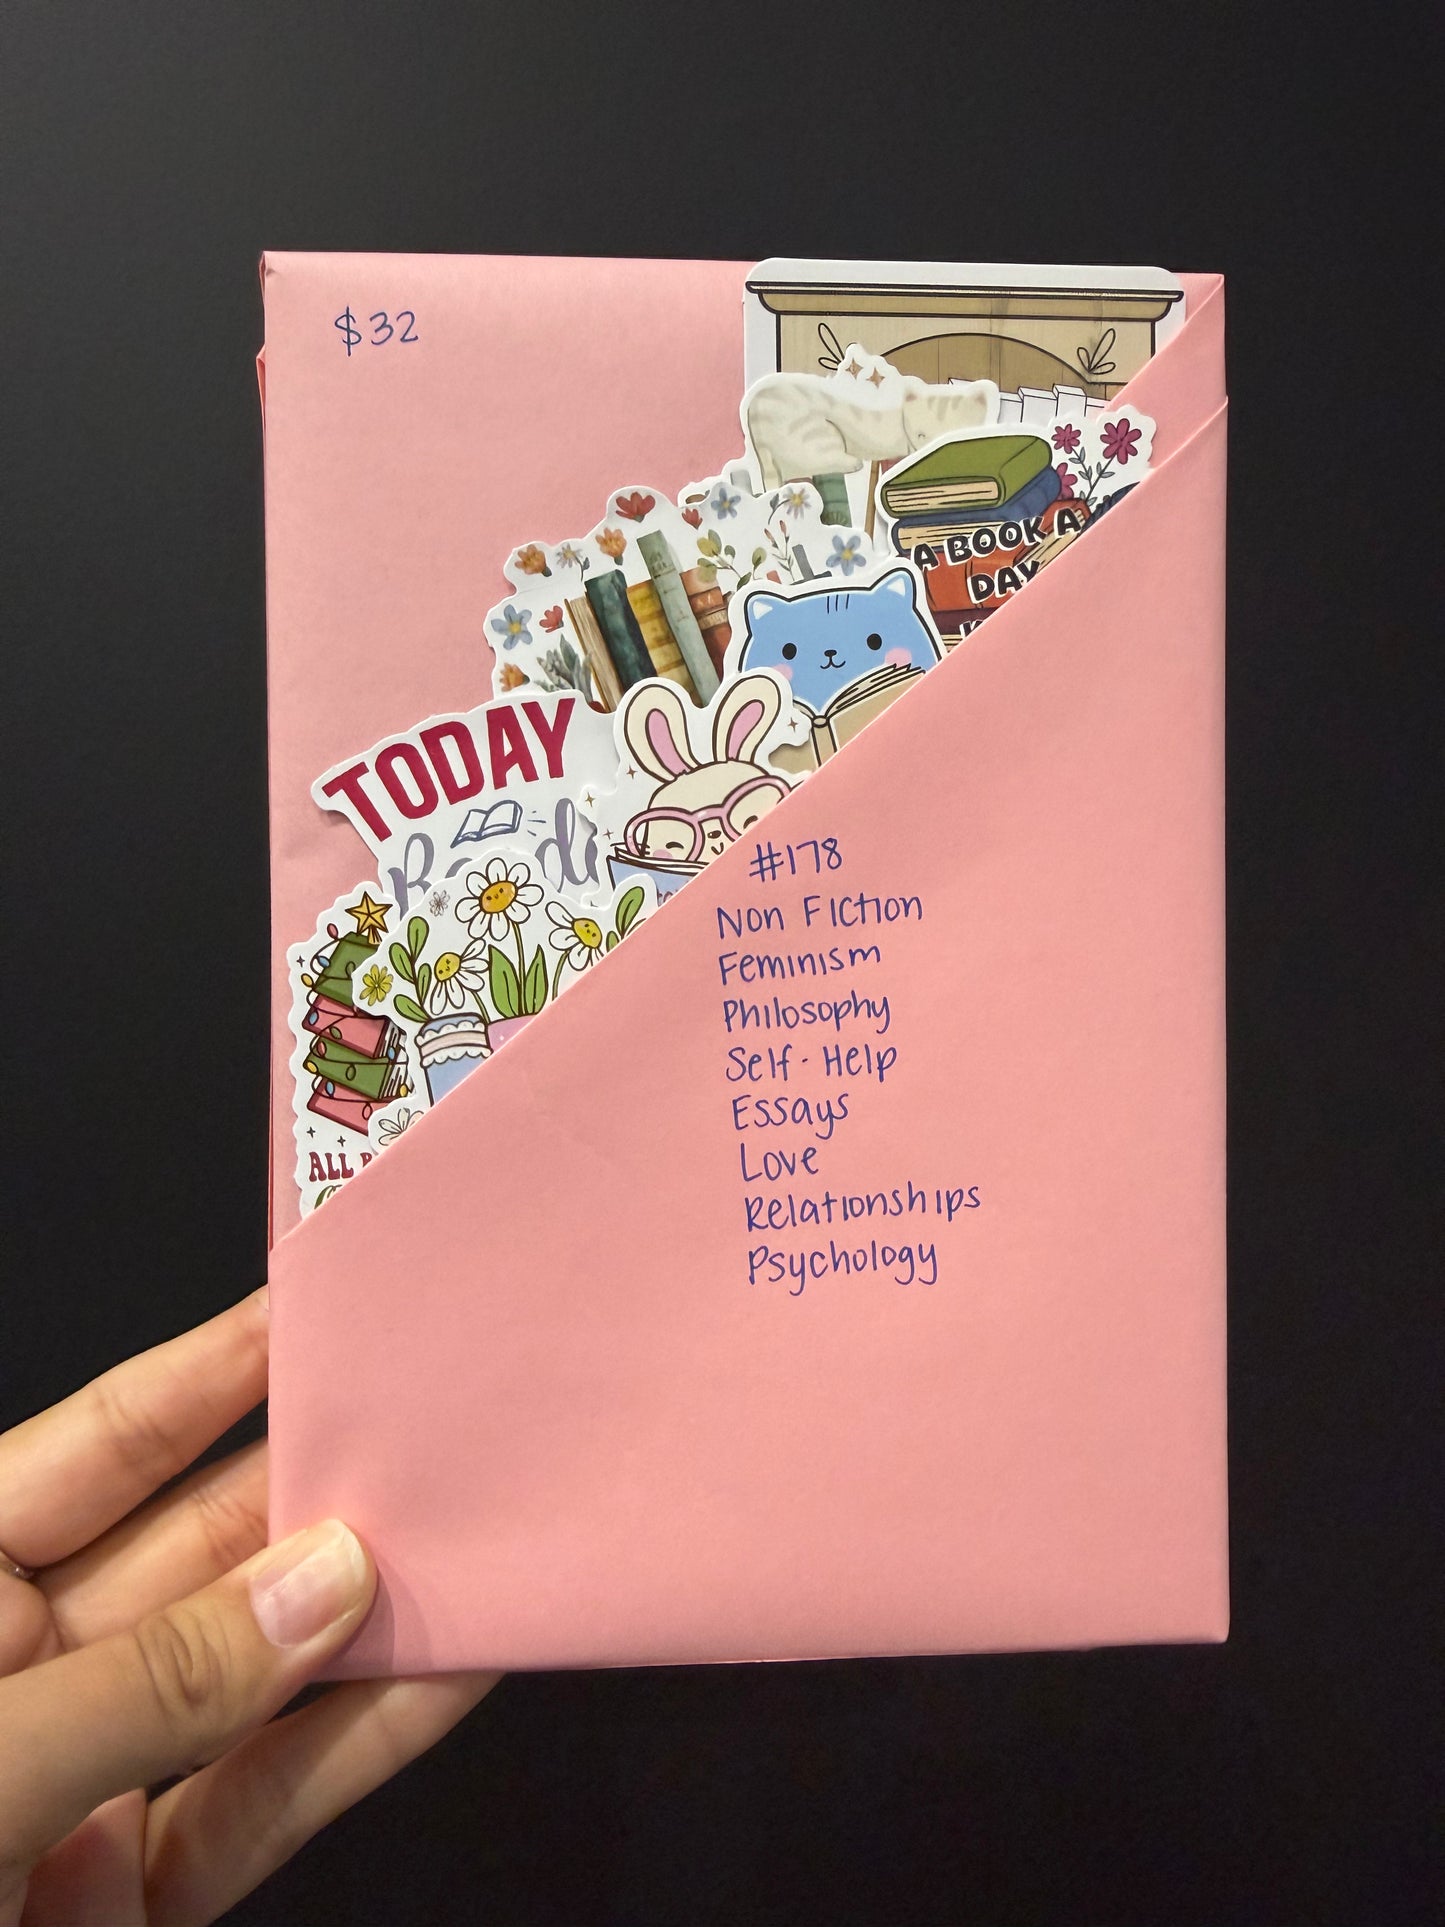 $32
A BOOK A
DAY
TODAY
ALL
#178
Non Fiction
Feminism
Philosophy
Self-Help
Essays
Love
Relationships
Psychology